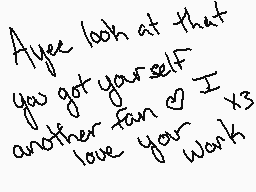 Ayee look at that
you got yourself
another fan ♡ I
love your work x3